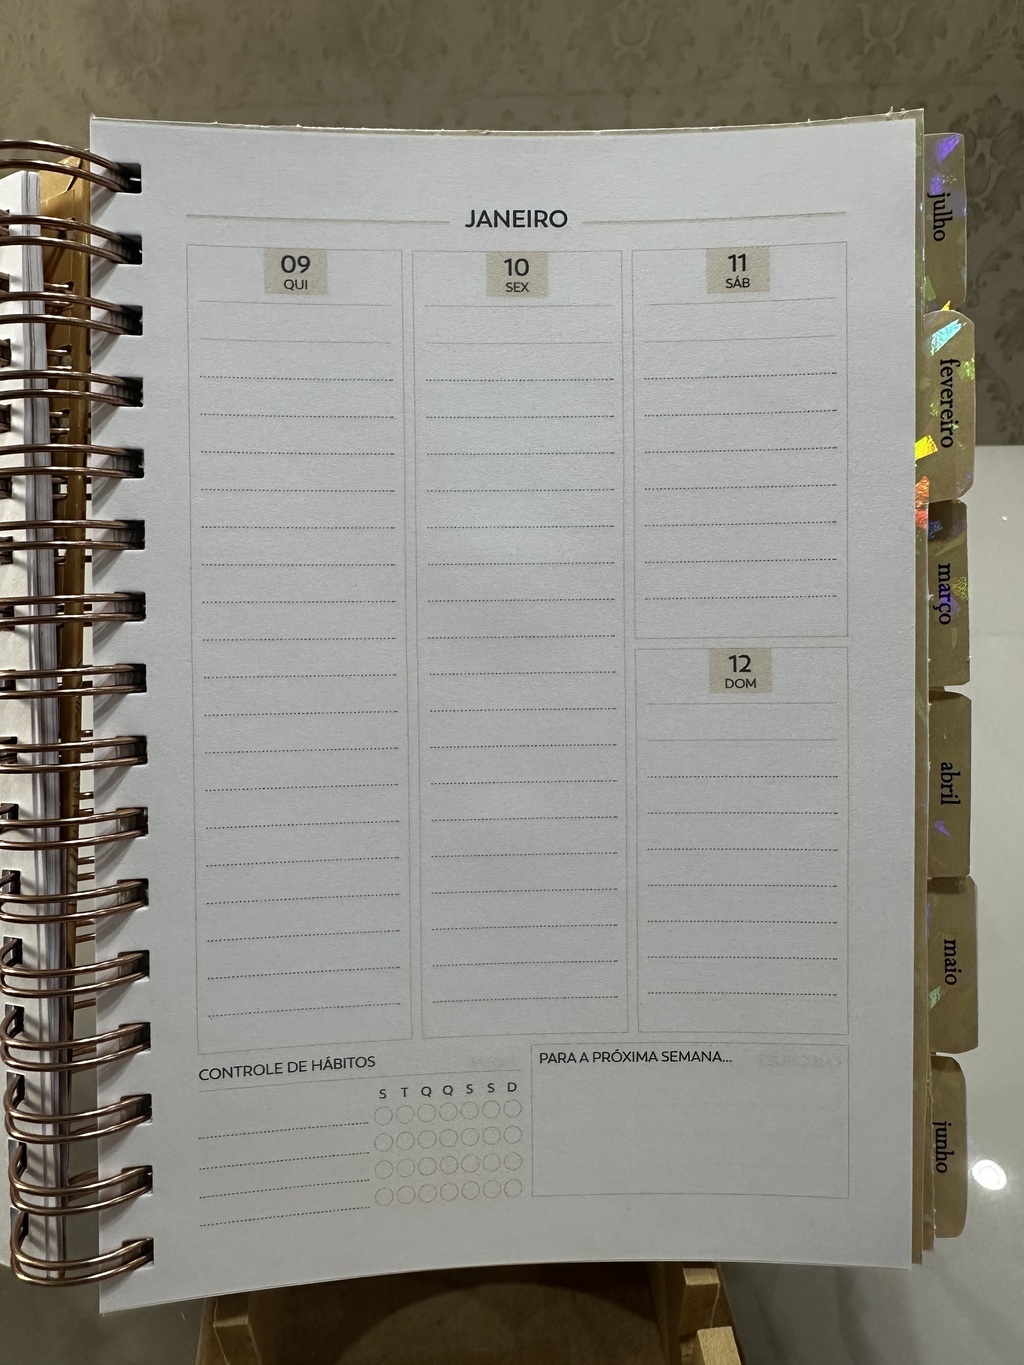 JANEIRO
09
QUI
10
SEX
11
SÁB
12
DOM
CONTROLE DE HÁBITOS
S T Q Q S S D
PARA A PRÓXIMA SEMANA...
julho
fevereiro
março
abril
maio
junho